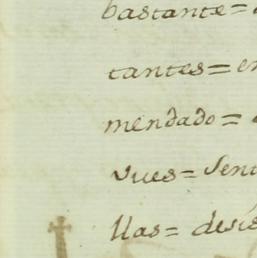 bastante =
tantes = en
mendado =
vues = Sent
llas = desie